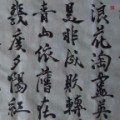 浪花淘盡英
是非成敗轉
青山依舊在
幾度夕陽紅